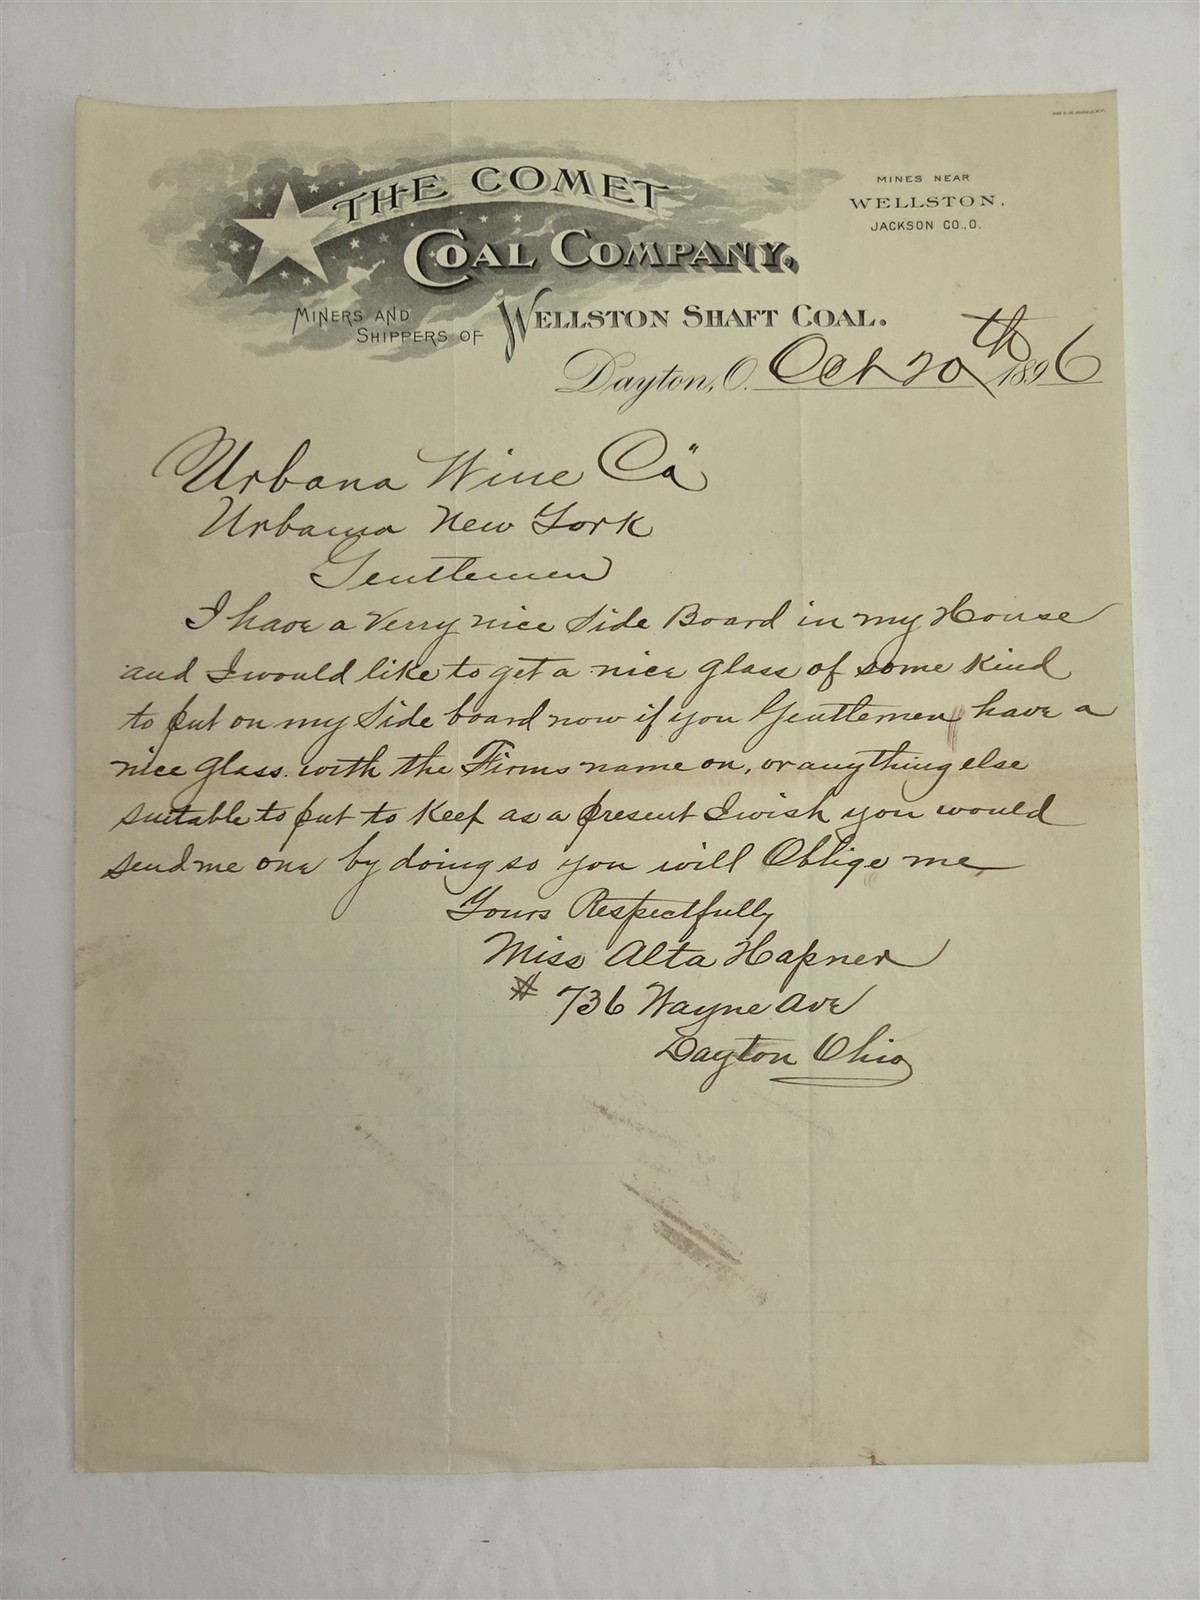 THE COMET
COAL COMPANY,
MINES NEAR
WELLSTON,
JACKSON CO., O.
MINERS AND
SHIPPERS OF
WELLSTON SHAFT COAL.
Dayton, O. Oct 20th 1896
Urbana Wine Co"
Urbana New York
Gentlemen
I have a Verry nice Side Board in my House
and I would like to get a nice glass of some kind
to put on my Side board now if you Gentlemen have a
nice glass. with the Firms name on, or anything else
suitable to put to keep as a present I wish you would
send me one by doing so you will Oblige me
Yours Respectfully
Miss Alta Hapner
# 736 Wayne Ave
Dayton Ohio